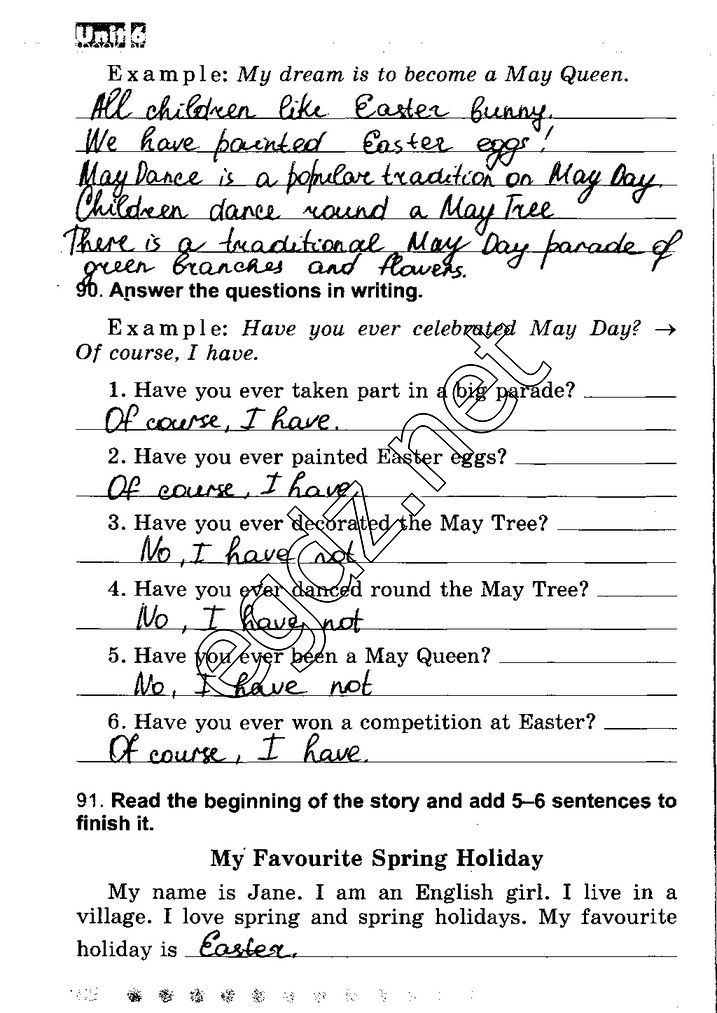 Unit 6
Example: My dream is to become a May Queen.
All children like Easter bunny.
We have painted Easter eggs!
May Dance is a popular tradition on May Day.
Children dance round a May Tree
There is a traditional May Day parade of
green branches and flowers.
90. Answer the questions in writing.
Example: Have you ever celebrated May Day? →
Of course, I have.
1. Have you ever taken part in a big parade?
Of course, I have.
2. Have you ever painted Easter eggs?
Of course, I have.
3. Have you ever decorated the May Tree?
No, I have not
4. Have you ever danced round the May Tree?
No, I have not
5. Have you ever been a May Queen?
No, I have not
6. Have you ever won a competition at Easter?
Of course, I have.
egdz.net
91. Read the beginning of the story and add 5–6 sentences to
finish it.
My Favourite Spring Holiday
My name is Jane. I am an English girl. I live in a
village. I love spring and spring holidays. My favourite
holiday is Easter.